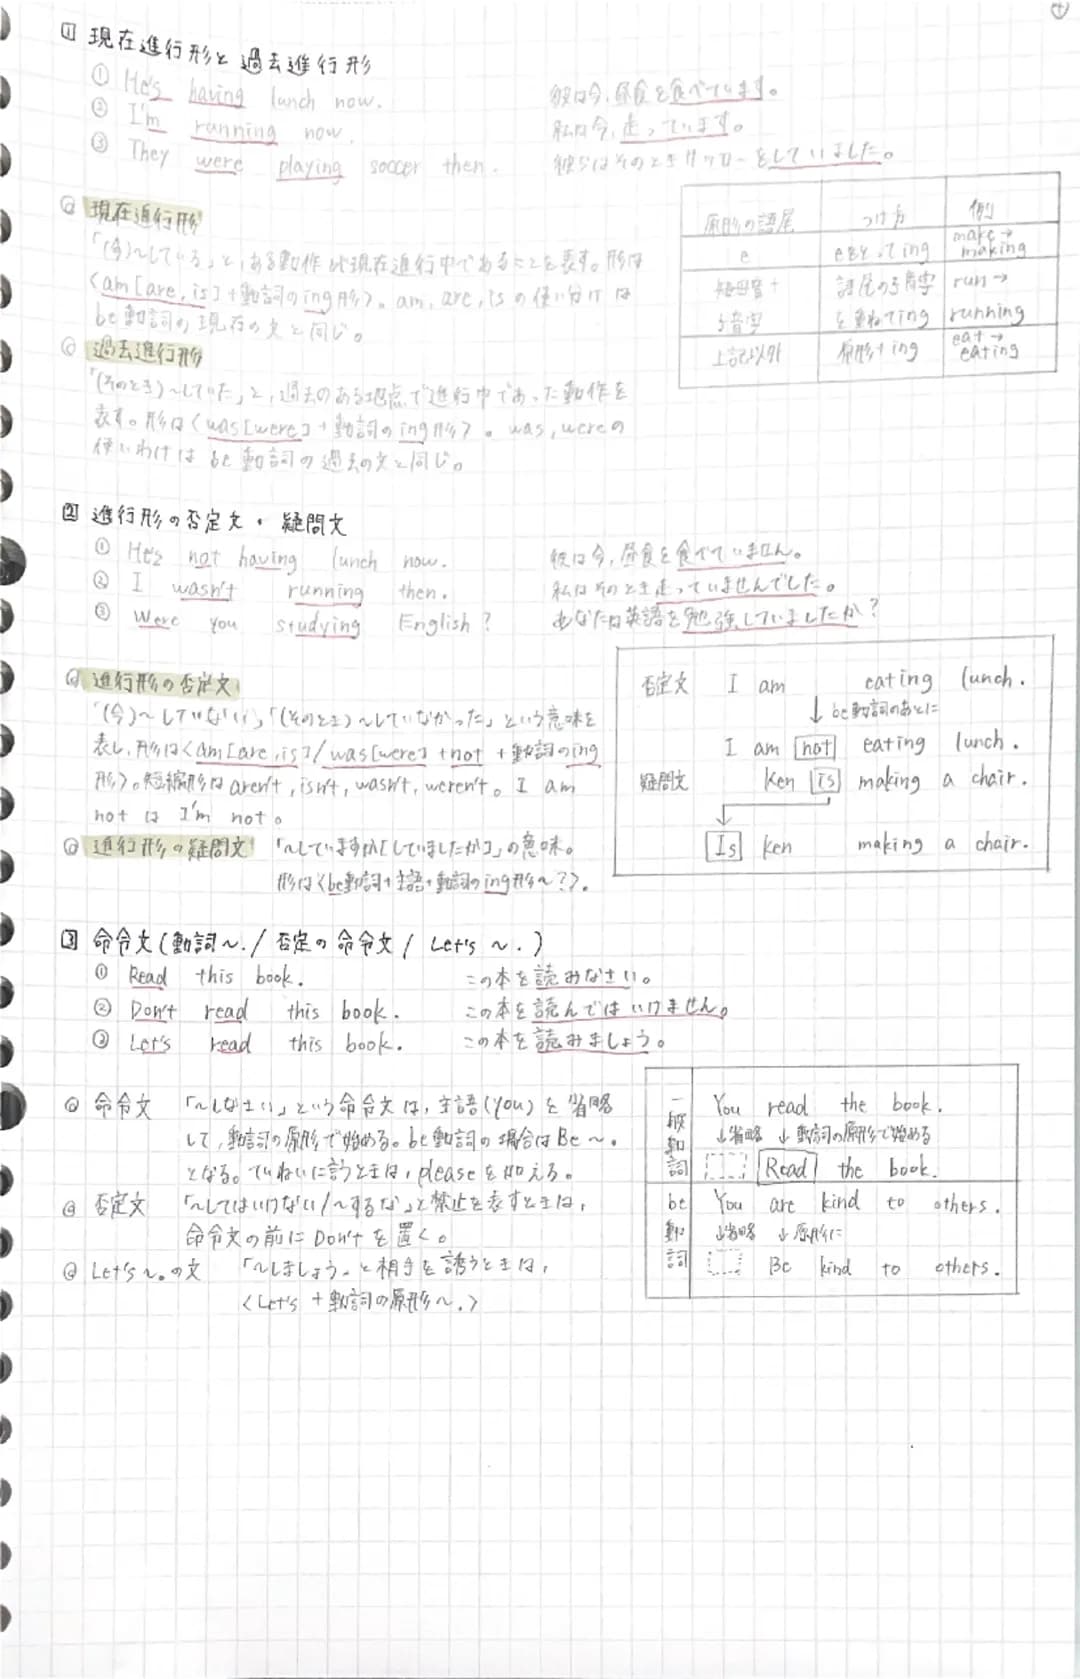 ④
1 現在進行形と過去進行形
① He's having lunch now. 彼は今,昼食を食べています。
② I'm running now. 私は今,走っています。
③ They were playing soccer then. 彼らはそのときサッカーをしていました。
◎ 現在進行形
「(今)〜している」と,ある動作が現在進行中であることを表す。形は
〈am[are,is]+動詞のing形〉。am,are,isの使い分けは
be動詞の現在の文と同じ。
原形の語尾 つけ方 例
e eをとってing make→making
短母音+子音字 語尾の子音字を重ねてing run→running
上記以外 原形+ing eat→eating
◎ 過去進行形
「(そのとき)〜していた」と,過去のある地点で進行中であった動作を
表す。形は〈was[were]+動詞のing形〉。was,wereの
使いわけはbe動詞の過去の文と同じ。
2 進行形の否定文・疑問文
① He's not having lunch now. 彼は今,昼食を食べていません。
② I wasn't running then. 私はそのとき走っていませんでした。
③ Were you studying English? あなたは英語を勉強していましたか?
◎ 進行形の否定文
「(今)〜していない」,「(そのとき)〜していなかった」という意味を
表し,形は〈am[are,is]/was[were]+not+動詞のing
形〉。短縮形はaren't,isn't,wasn't,weren't。I am
not は I'm not。
◎ 進行形の疑問文 「〜していますか[していましたか]」の意味。
形は〈be動詞+主語+動詞のing形〜?〉.
否定文 I am eating lunch.
↓be動詞のあとに
I am not eating lunch.
疑問文 Ken is making a chair.
Is Ken making a chair.
3 命令文(動詞〜./否定の命令文/Let's 〜.)
① Read this book. この本を読みなさい。
② Don't read this book. この本を読んではいけません。
③ Let's read this book. この本を読みましょう。
◎ 命令文 「〜しなさい」という命令文は,主語(You)を省略
して,動詞の原形で始める。be動詞の場合はBe〜.
となる。ていねいに言うときは,pleaseを加える。
◎ 否定文 「〜してはいけない/〜するな」と禁止を表すときは,
命令文の前にDon'tを置く。
◎ Let's〜.の文 「〜しましょう」と相手を誘うときは,
〈Let's+動詞の原形〜.〉
一般動詞 You read the book.
↓省略 ↓動詞の原形で始める
Read the book.
be動詞 You are kind to others.
↓省略 ↓原形に
Be kind to others.